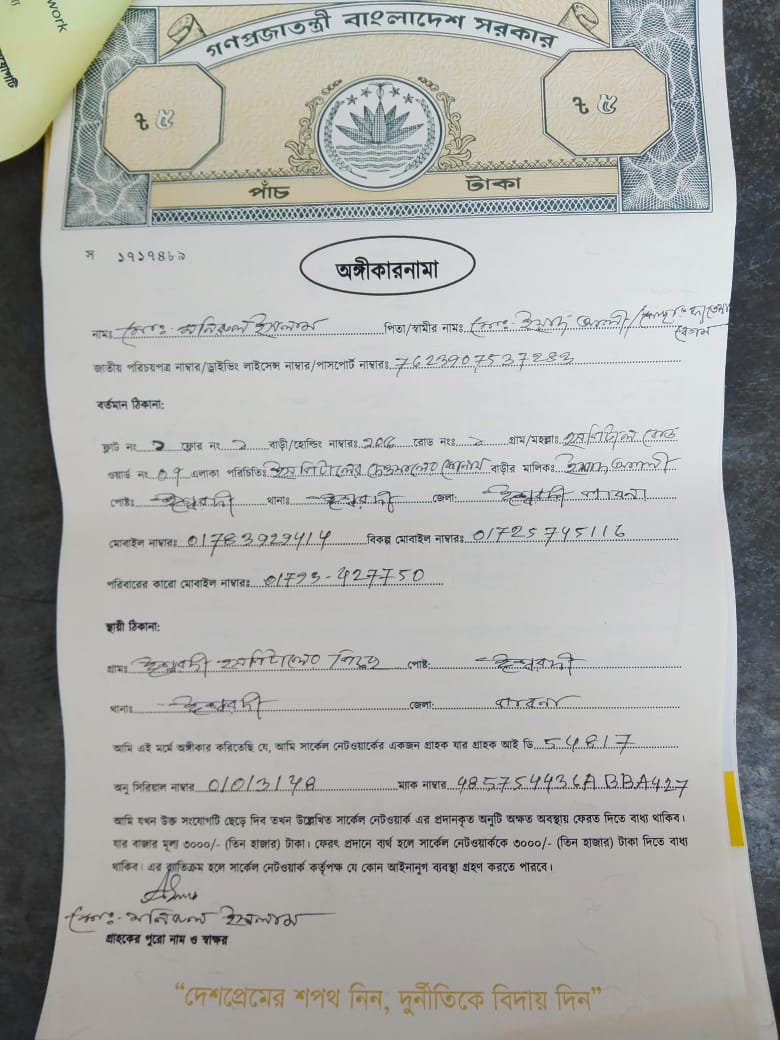 work
গণপ্রজাতন্ত্রী বাংলাদেশ সরকার
৳ ৫ ৳ ৫
পাঁচ টাকা
স ১৭১৭৪৮৯
অঙ্গীকারনামা
নামঃ মোঃ মনিরুল ইসলাম পিতা/স্বামীর নামঃ মোঃ ইয়াদ আলী/
বেগম
জাতীয় পরিচয়পত্র নাম্বার/ড্রাইভিং লাইসেন্স নাম্বার/পাসপোর্ট নাম্বারঃ 7623907537283
বর্তমান ঠিকানা:
ফ্লাট নং ফ্লোর নং বাড়ী/হোল্ডিং নাম্বারঃ রোড নংঃ গ্রাম/মহল্লাঃ হসপিটাল রোড
ওয়ার্ড নং 07 এলাকা পরিচিতিঃ হসপিটালের বাড়ীর মালিকঃ ইয়াদ আলী
পোষ্টঃ ঈশ্বরদী থানাঃ ঈশ্বরদী জেলা: ঈশ্বরদী পাবনা
মোবাইল নাম্বারঃ 01783929414 বিকল্প মোবাইল নাম্বারঃ 01725745116
পরিবারের কারো মোবাইল নাম্বারঃ 01793-427750
স্থায়ী ঠিকানা:
গ্রামঃ ঈশ্বরদী হসপিটালের পিছে পোষ্ট: ঈশ্বরদী
থানাঃ ঈশ্বরদী জেলা: পাবনা
আমি এই মর্মে অঙ্গীকার করিতেছি যে, আমি সার্কেল নেটওয়ার্কের একজন গ্রাহক যার গ্রাহক আই ডি 54817
অনু সিরিয়াল নাম্বার 01013148 ম্যাক নাম্বার 485754436ABBA427
আমি যখন উক্ত সংযোগটি ছেড়ে দিব তখন উল্লেখিত সার্কেল নেটওয়ার্ক এর প্রদানকৃত অনুটি অক্ষত অবস্থায় ফেরত দিতে বাধ্য থাকিব।
যার বাজার মূল্য ৩০০০/- (তিন হাজার) টাকা। ফেরৎ প্রদানে ব্যর্থ হলে সার্কেল নেটওয়ার্ককে ৩০০০/- (তিন হাজার) টাকা দিতে বাধ্য
থাকিব। এর ব্যতিক্রম হলে সার্কেল নেটওয়ার্ক কর্তৃপক্ষ যে কোন আইনানুগ ব্যবস্থা গ্রহণ করতে পারবে।
মোঃ মনিরুল ইসলাম
গ্রাহকের পুরো নাম ও স্বাক্ষর
“দেশপ্রেমের শপথ নিন, দুর্নীতিকে বিদায় দিন”